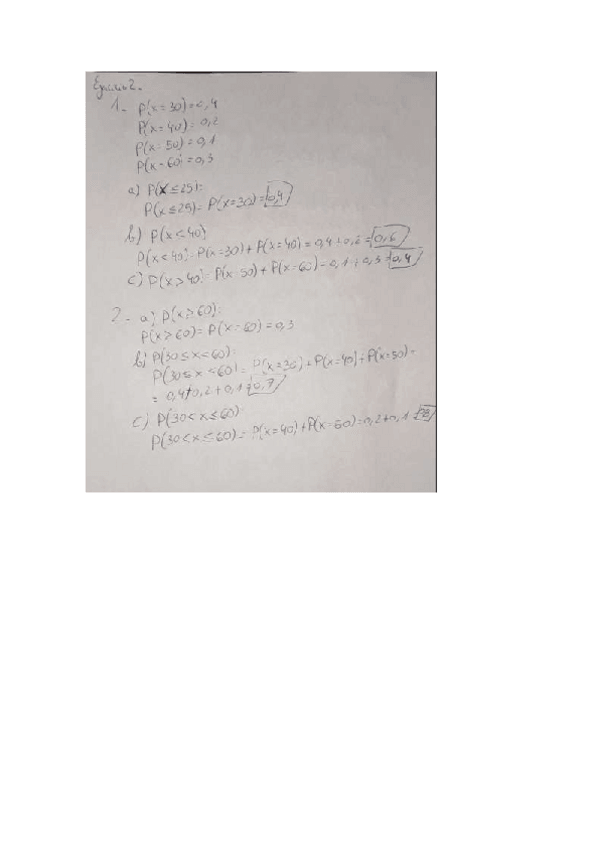 2.
1- P(x=30)=0,4
P(x=40)=0,2
P(x=50)=0,1
P(x=60)=0,3
a) P(x≤25):
P(x≤25)= P(x=30)=0,4
b) P(x<40)
P(x<40)=P(x=30)+P(x=40)=0,4+0,2=0,6
c) P(x>40)=P(x=50)+P(x=60)=0,1+0,3=0,4
2- a) P(x≥60):
P(x≥60)=P(x=60)=0,3
b) P(30≤x<60):
P(30≤x<60)= P(x=30)+P(x=40)+P(x=50)=
= 0,4+0,2+0,1=0,7
c) P(30<x≤60):
P(30<x≤60)= P(x=40)+P(x=60)=0,2+0,1